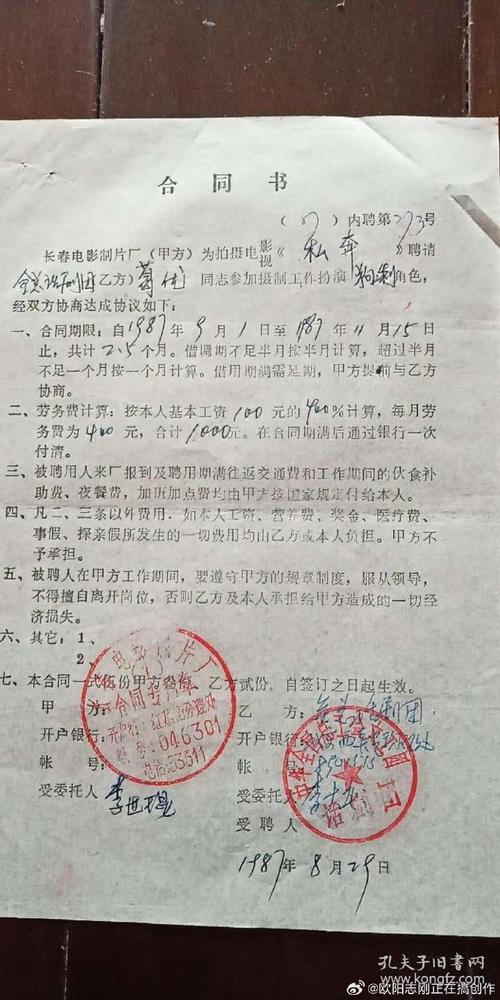 合同书
(87)内聘第273号
长春电影制片厂(甲方)为拍摄电影视《私奔》聘请
全总话剧团(乙方)葛优同志参加摄制工作扮演 角色,
经双方协商达成协议如下:
一、合同期限:自1987年9月1日至1987年11月15日
止,共计2.5个月。借调期不足半月按半月计算,超过半月
不足一个月按一个月计算。借用期满需延期,甲方提前与乙方
协商。
二、劳务费计算:按本人基本工资100元的400%计算,每月劳
务费为400元,合计1000元。在合同期满后通过银行一次
付清。
三、被聘用人来厂报到及聘用期满往返交通费和工作期间的伙食补
助费、夜餐费,加班加点费均由甲方按国家规定付给本人。
四、凡二、三条以外费用,如本人工资、营养费、奖金、医疗费、
事假、探亲假所发生的一切费用均由乙方或本人负担。甲方不
予承担。
五、被聘人在甲方工作期间,要遵守甲方的规章制度,服从领导,
不得擅自离开岗位,否则乙方及本人承担给甲方造成的一切经
济损失。
六、其它:1、
2、
七、本合同一式伍份甲方叁份,乙方贰份,自签订之日起生效。
甲方:
乙方:全总话剧团
开户银行:
开户银行:
帐号:
帐号:
受委托人
受委托人
受聘人
1987年8月29日
电影制片厂
合同专用章
046301
电话53311
话剧团
孔夫子旧书网
@欧阳志刚正在搞创作